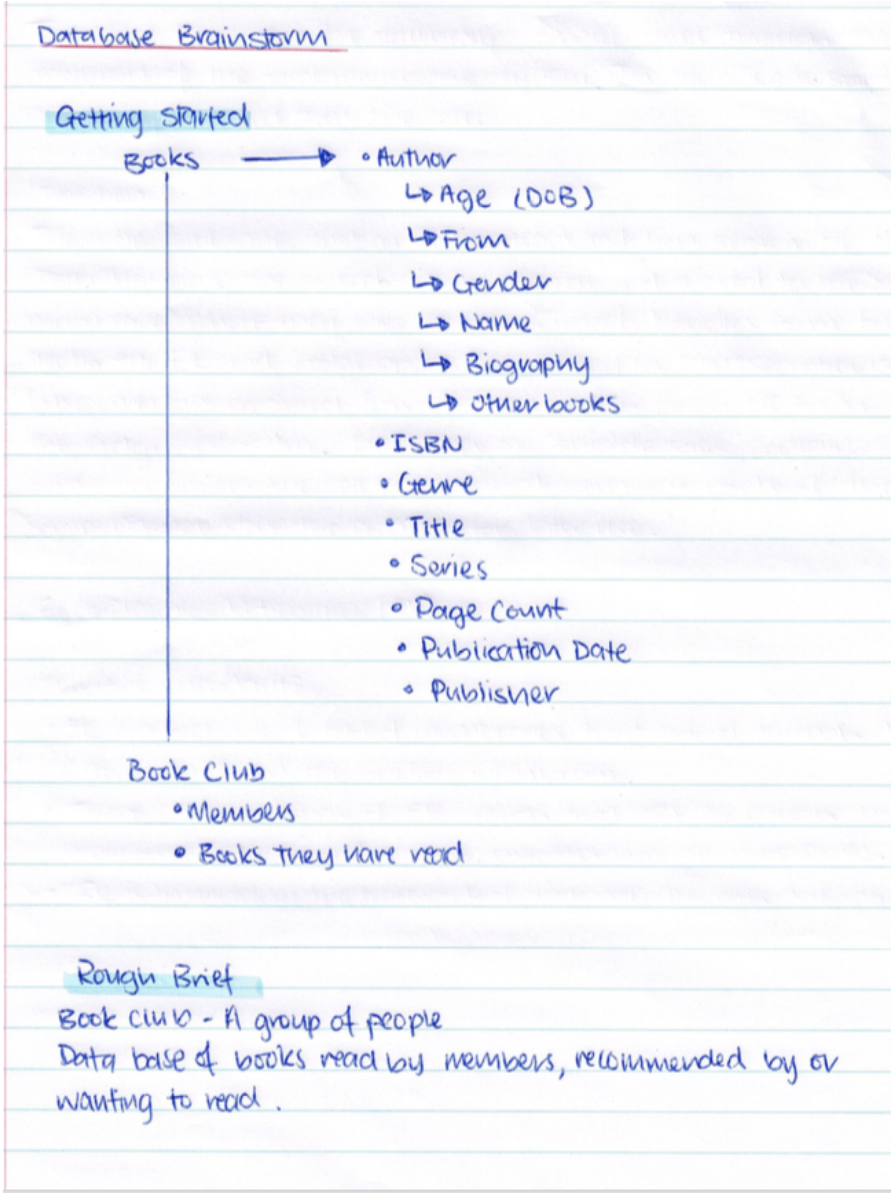 Database Brainstorm
Getting started
Books → • Author
↳ Age (DOB)
↳ From
↳ Gender
↳ Name
↳ Biography
↳ other books
• ISBN
• Genre
• Title
• Series
• Page Count
• Publication Date
• Publisher
Book Club
• Members
• Books they have read
Rough Brief
Book club - A group of people
Data base of books read by members, recommended by or
wanting to read.